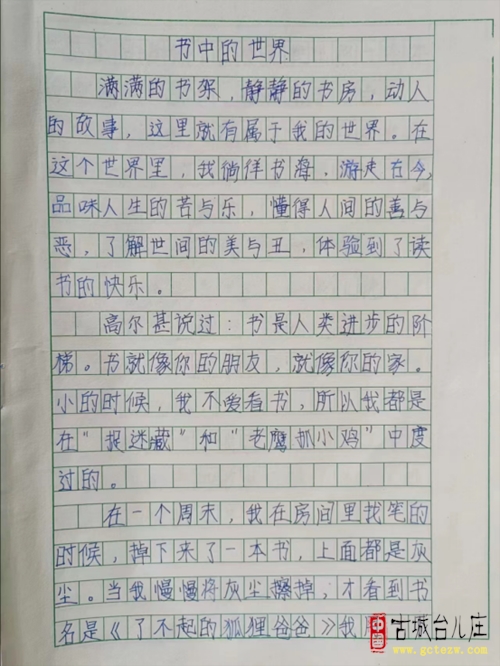 书中的世界
满满的书架，静静的书房，动人
的故事，这里就有属于我的世界。在
这个世界里，我徜徉书海，游走古今，
品味人生的苦与乐，懂得人间的善与
恶，了解世间的美与丑，体验到了读
书的快乐。
高尔甚说过：书是人类进步的阶
梯。书就像你的朋友，就像你的家。
小的时候，我不爱看书，所以我都是
在“捉迷藏”和“老鹰抓小鸡”中度
过的。
在一个周末，我在房间里找笔的
时候，掉下来了一本书，上面都是灰
尘。当我慢慢将灰尘擦掉，才看到书
名是《了不起的狐狸爸爸》我
古城台儿庄
www.gctezw.com